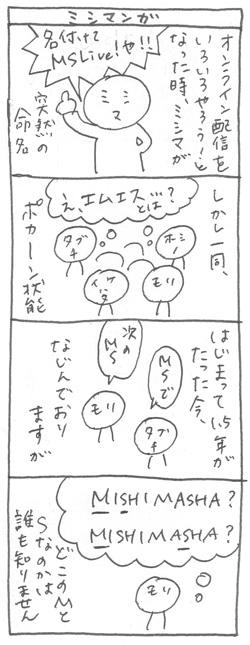 ミシマンガ
オンライン配信を
いろいろやろう!と
なった時、ミシマが
名付けて
MSLive!や!!
ミミ
マ
突然の
命名
しかし一同、
え、エムエスとは…?
タブチ
ホシノ
イケハタ
モリ
ポカーン状態
はじまって1.5年が
たった今、
次の
MS
MSで
モリ
タブチ
なじんでおり
ますが
MISHIMASHA?
MISHIMASHA?
モリ
どこのMと
Sなのかは
誰も知りません